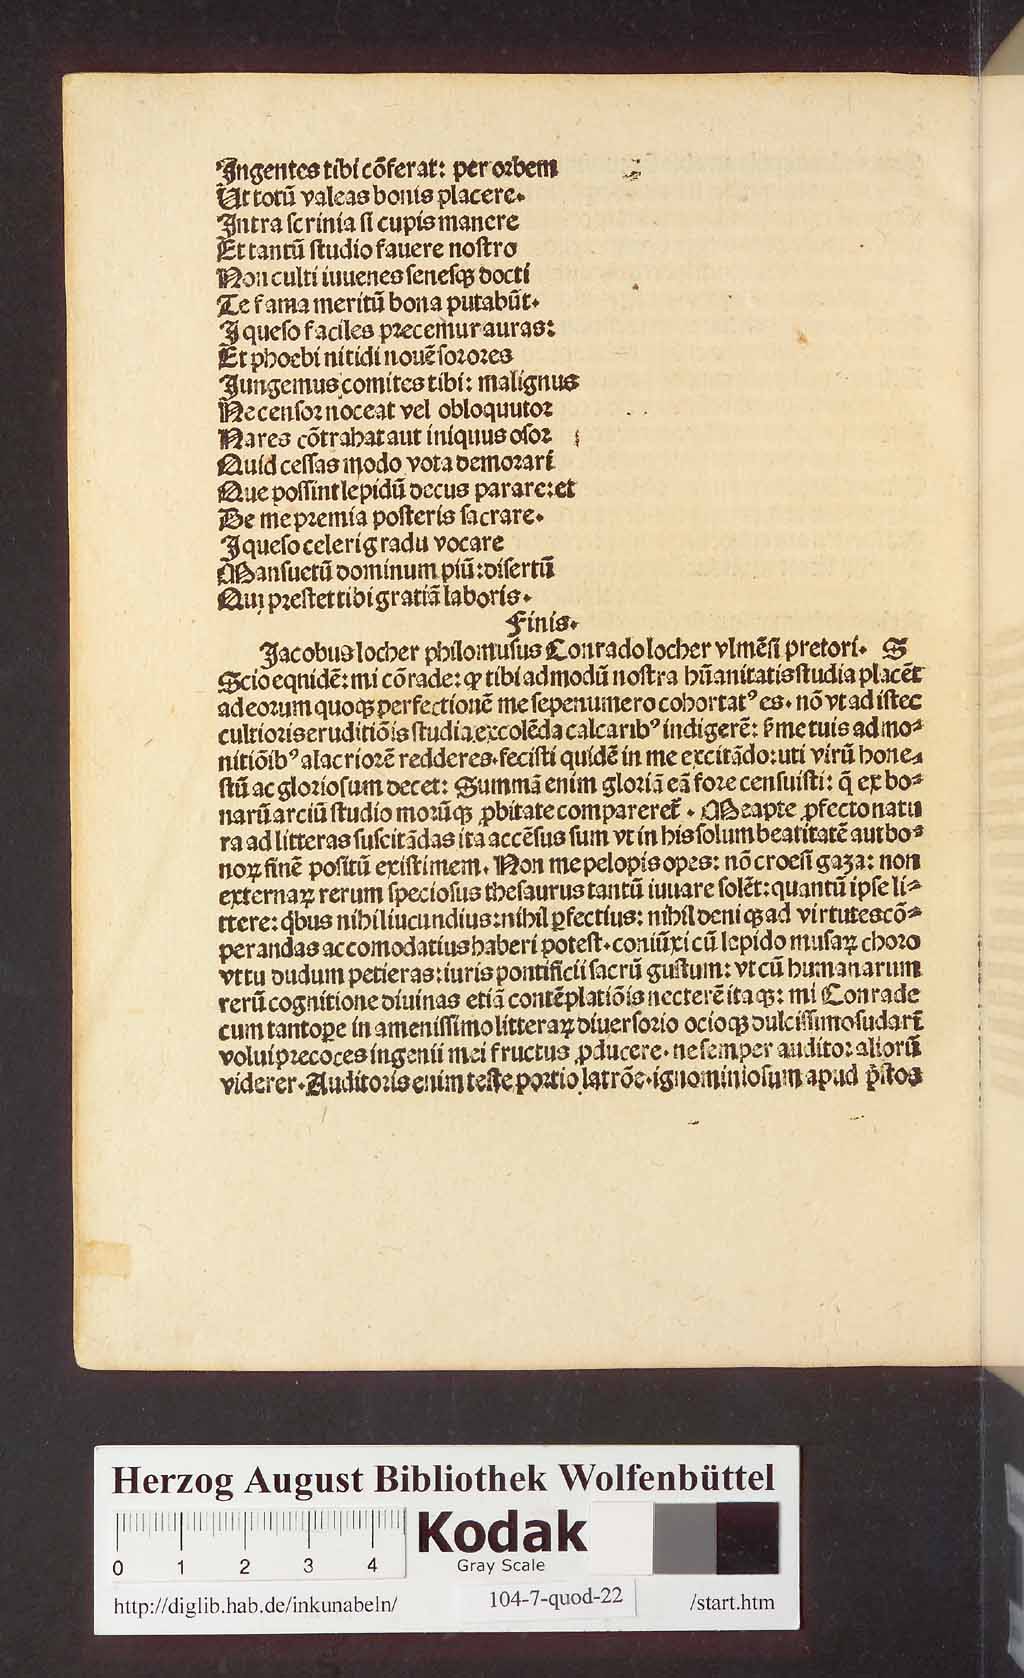 Ingentes tibi cõferat: per orbem
Ut totũ valeas bonis placere.
Intra scrinia si cupis manere
Et tantũ studio fauere nostro
Non culti iuuenes senesqꝫ docti
Te fama meritũ bona putabũt.
I queso faciles precemur auras:
Et phoebi nitidi nouẽ sorores
Jungemus comites tibi: malignus
Ne censor noceat vel obloquutor
Nares cõtrahat aut iniquus osor
Quid cessas modo vota demorari
Que possint lepidũ decus parare: et
De me premia posteris sacrare.
I queso celeri gradu vocare
Mansuetũ dominum piũ: disertũ
Qui prestet tibi gratiã laboris.
Finis.
Jacobus locher philomusus Conrado locher vlmẽsi pretori. S
Scio eqnidẽ: mi cõrade: ꝙ tibi admodũ nostra hũanitatis studia placẽt
ad eorum quoqꝫ perfectionẽ me sepenumero cohortatꝰ es. nõ vt ad istec
cultioris eruditiõis studia excolẽda calcaribꝰ indigerẽ: sꝫ me tuis admo-
nitiõibꝰ alacriorẽ redderes. fecisti quidẽ in me excitãdo: uti virũ hone-
stũ ac gloriosum decet: Summã enim gloriã eã fore censuisti: q̃ ex bo-
narũ arciũ studio morũqꝫ ꝓbitate compareret̃. Meapte ꝓfecto natu
ra ad litteras suscitãdas ita accẽsus sum vt in his solum beatitatẽ aut bo-
noꝝ finẽ positũ existimem. Non me pelopis opes: nõ croesi gaza: non
externaꝝ rerum speciosus thesaurus tantũ iuuare solẽt: quantũ ipse li-
ttere: q̇bus nihil iucundius: nihil ꝑfectius: nihil deniqꝫ ad virtutes cõ-
perandas accomodatius haberi potest. coniũxi cũ lepido musaꝝ choro
vt tu dudum petieras: iuris pontificii sacrũ gustum: vt cũ humanarum
rerũ cognitione diuinas etiã contẽplatiõis necterẽ itaqꝫ: mi Conrade
cum tantoꝑe in amenissimo litteraꝝ diuersorio ocioqꝫ dulcissimo sudarẽ
volui precoces ingenii mei fructus ꝓducere. ne semper auditor aliorũ
viderer. Auditoris enim teste portio latrõe. ignominiosum apud p̃stos